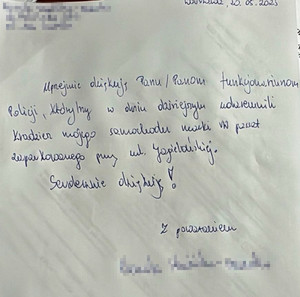 10.06.2025
Uprzejmie dziękuję Panu/Panom funkcjonariuszom
Policji, którzy w dniu dzisiejszym udaremnili
kradzież mojego samochodu marki VW
zaparkowanego przy ul. Jagiellońskiej.
Serdecznie dziękuję!
Z poważaniem